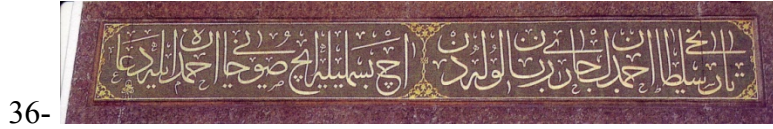 36-
تاريخى سلطان احمدك جارى زبان لوله دن آچ بسمله يله ايچ صويى خان احمده ايله دعا